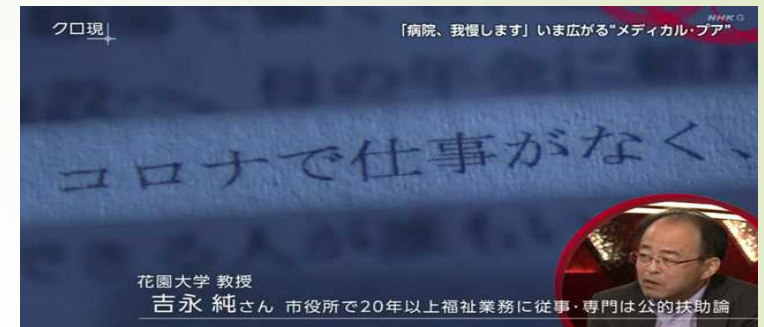 クロ現
NHK G
「病院、我慢します」いま広がる“メディカル・プア”
コロナで仕事がなく、
花園大学 教授
吉永 純さん 市役所で20年以上福祉業務に従事・専門は公的扶助論